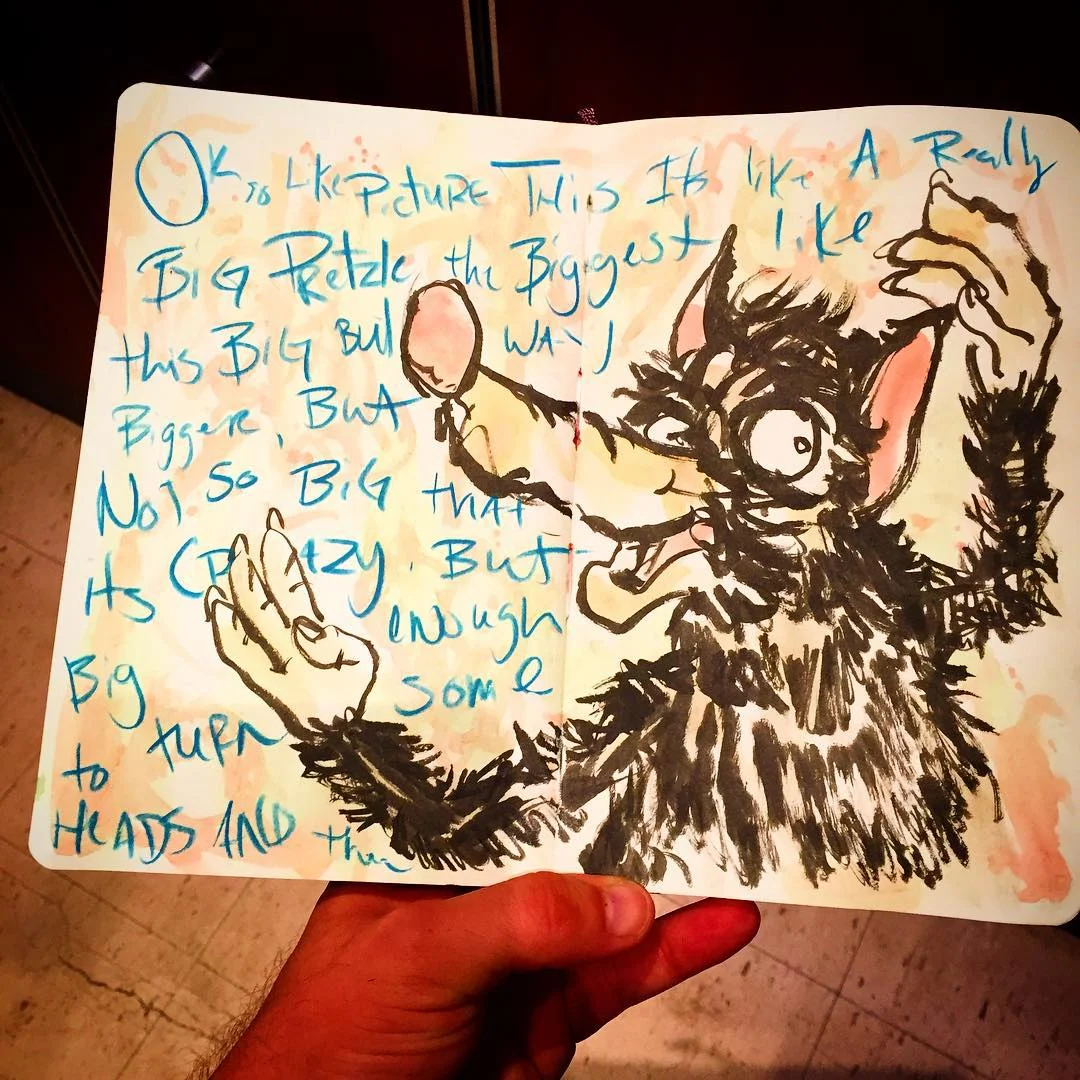 OK so Like Picture This Its like A Really
BIG Pretzle the Biggest like
this BIG but WAY
Bigger, But
Not so BIG that
its CRAZY. But
enough
Big some
to turn
HEADS AND then